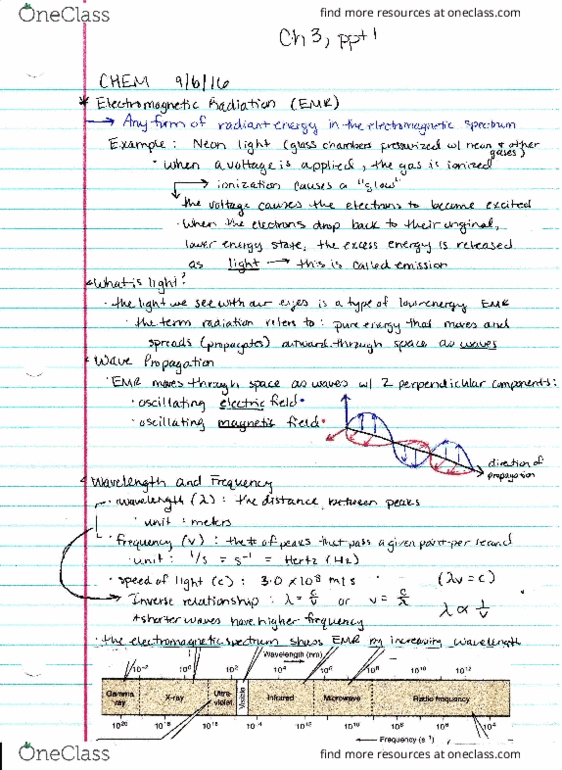 OneClass
find more resources at oneclass.com
Ch 3, ppt 1
CHEM 9/6/16
* Electromagnetic Radiation (EMR)
→ Any form of radiant energy in the electromagnetic spectrum
Example: Neon light (glass chambers pressurized w/ neon & other gases)
· when a voltage is applied, the gas is ionized
→ ionization causes a "glow"
the voltage causes the electrons to become excited
· when the electrons drop back to their original,
lower energy state, the excess energy is released
as light → this is called emission
What is light?
· the light we see with our eyes is a type of low energy EMR
· the term radiation refers to: pure energy that moves and
spreads (propagates) outward through space as waves
Wave Propagation
· EMR moves through space as waves w/ 2 perpendicular components:
· oscillating electric field
· oscillating magnetic field
direction of
propagation
Wavelength and Frequency
· wavelength (λ): the distance between peaks
· unit: meters
· frequency (ν): the # of peaks that pass a given point per second
· unit: 1/s = s⁻¹ = Hertz (Hz)
· speed of light (c): 3.0 x 10⁸ m/s (λν = c)
Inverse relationship: λ = c/ν or ν = c/λ λ ∝ 1/ν
* shorter waves have higher frequency
· the electromagnetic spectrum shows EMR by increasing wavelength
Wavelength (nm)
10⁻² 10⁰ 10² 10⁴ 10⁶ 10⁸ 10¹⁰ 10¹²
Gamma ray X-ray Ultra-violet Visible Infrared Microwave Radio frequency
10²⁰ 10¹⁸ 10¹⁶
Frequency (s⁻¹)
OneClass
find more resources at oneclass.com